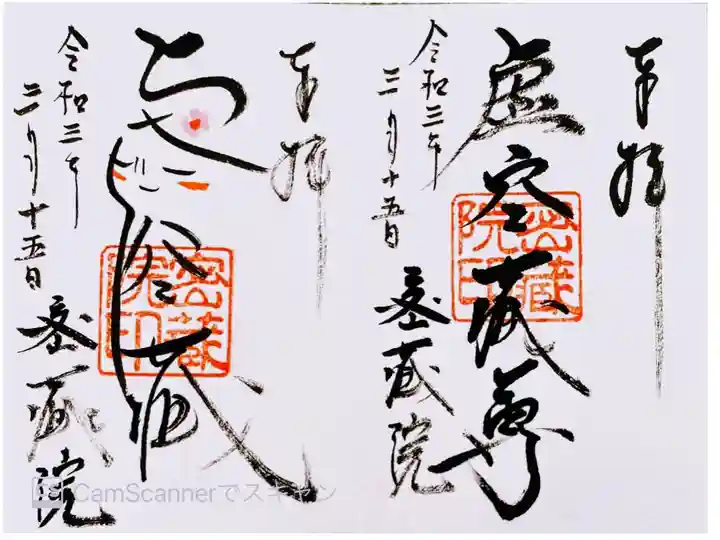 奉拝
虚空蔵尊
令和三年
三月十五日
密蔵院
密蔵院印
奉拝
空蔵
令和三年
三月十五日
密蔵院
密蔵院印
CamScannerでスキャン